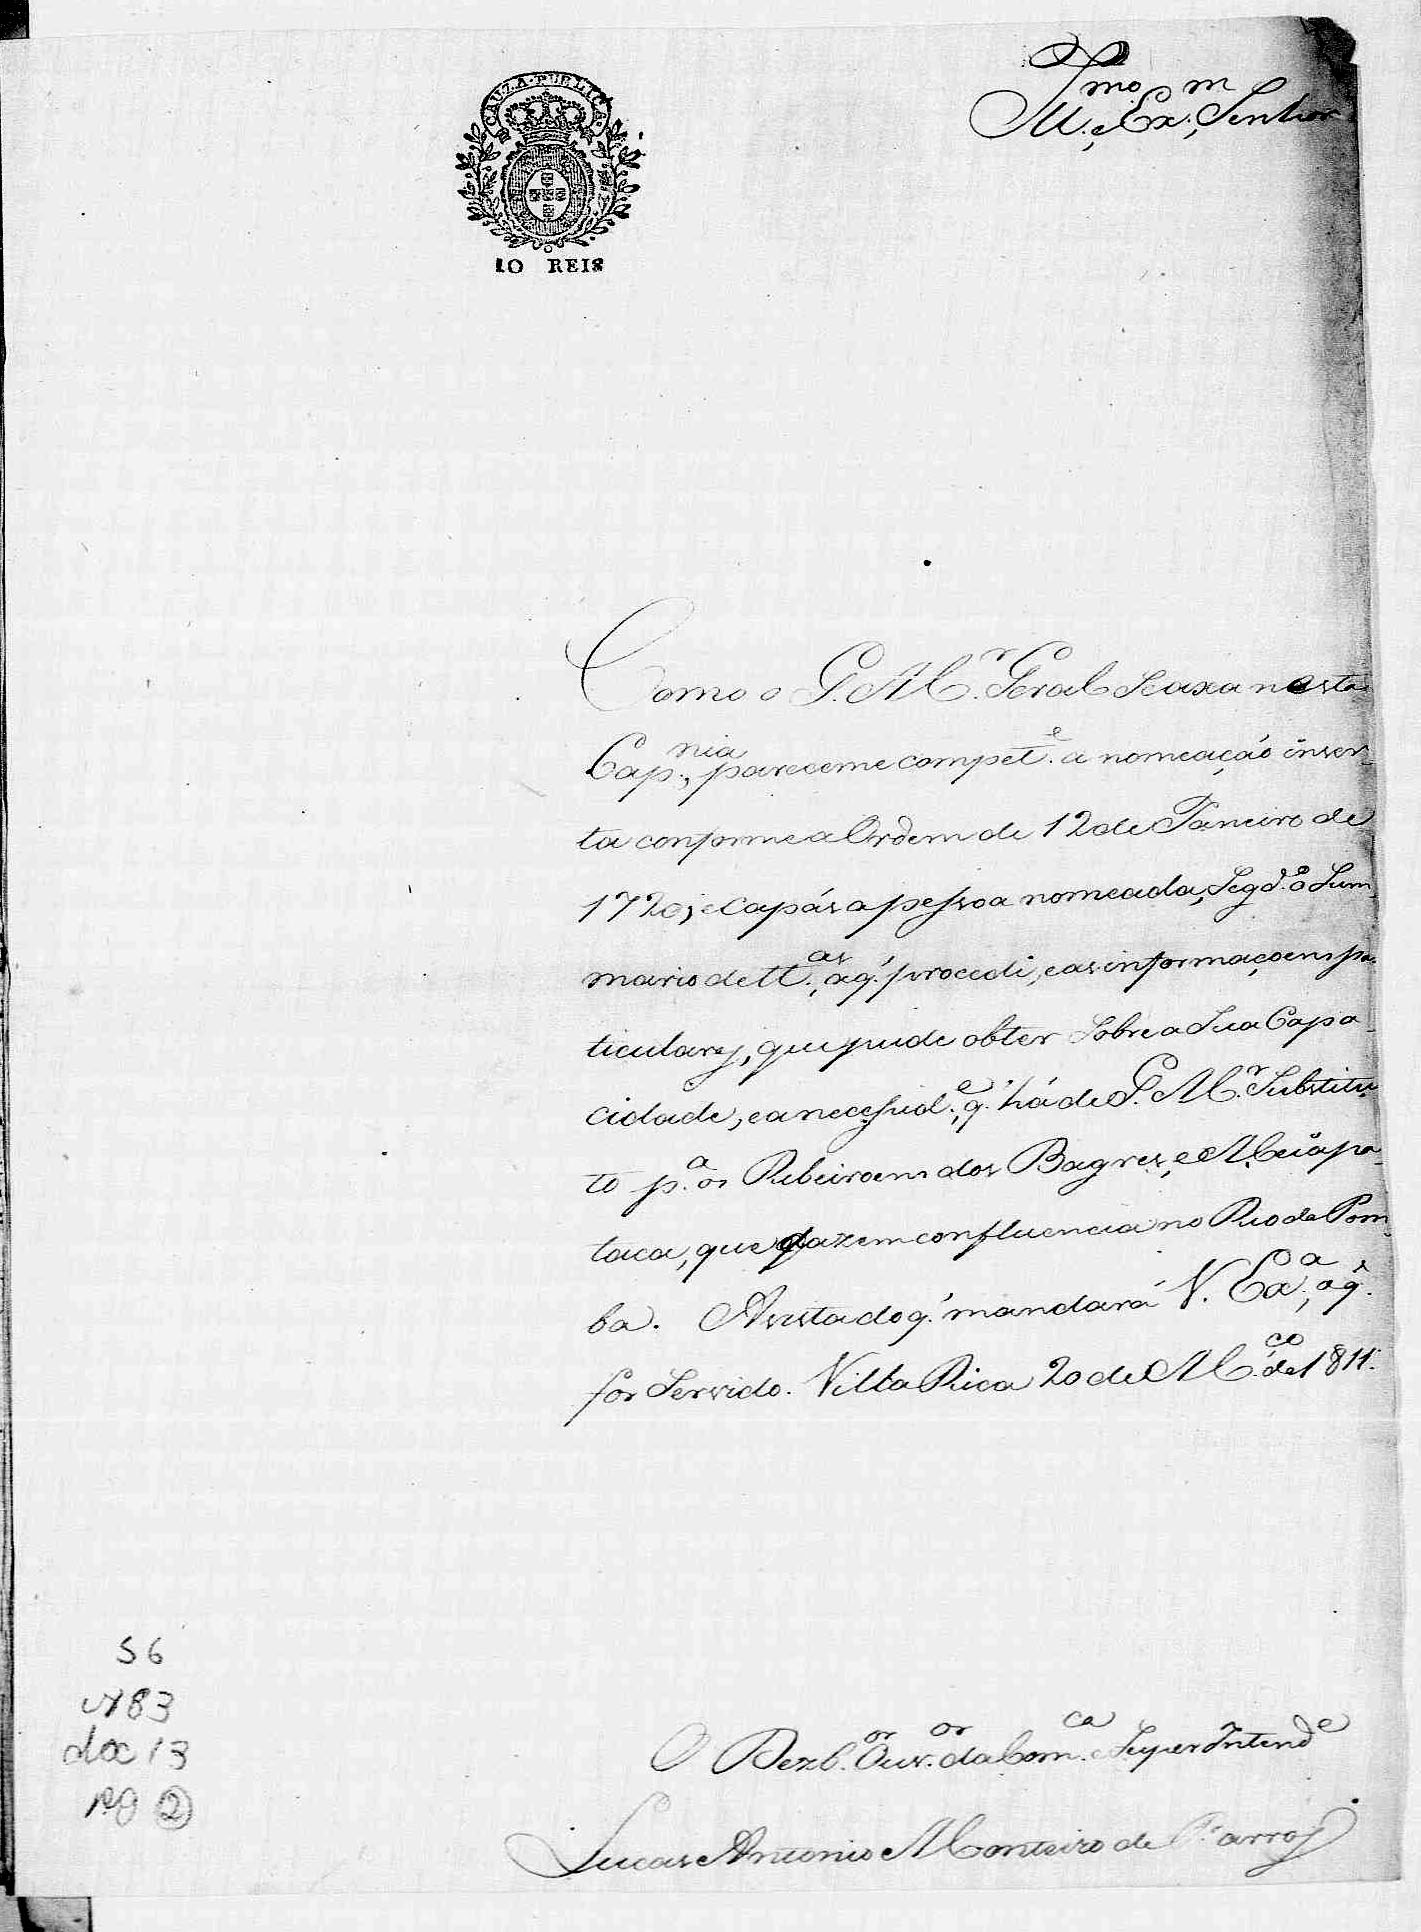 CAUZA PUBLICA
10 REIS
Illmo. e Exm. Senhor
Como o G. M.r Geral se axa nesta
Cap.nia, pareceme compet.e a nomeação inser-
ta conforme a Ordem de 12 de Janeiro de
1720, e capás a pessoa nomeada, Segd.o o Sum-
mario de tt.as, a q' procedi, e as informaçoens par-
ticulares, que pude obter Sobre a Sua Capa-
cidade, e a necessid.e, q' há de G. M.r Substitu-
to p.a os Ribeiroens dos Bagres, e
taca, que fazem confluencia no Rio da Pom-
ba. A vista do q' mandará V. Ex.a, o q'
for Servido. Villa Rica 20 de M.ço de 1811.
O Dezb.or Ouv.or da Com.ca e SuperIntend.e
Lucas Antonio Monteiro de Barros
S6
doc 13
pg 2